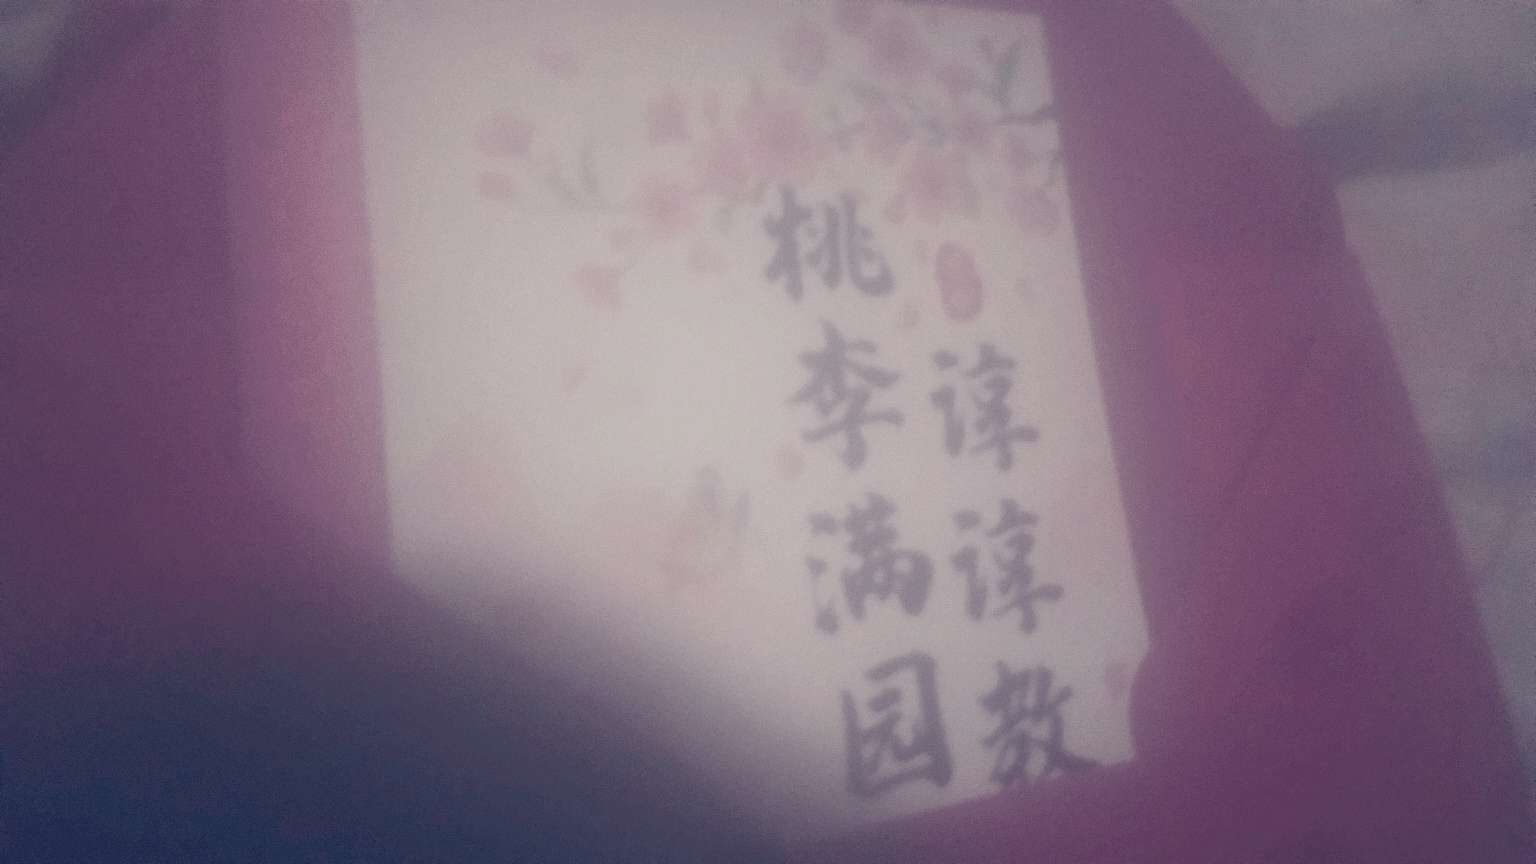 谆谆教
桃李满园